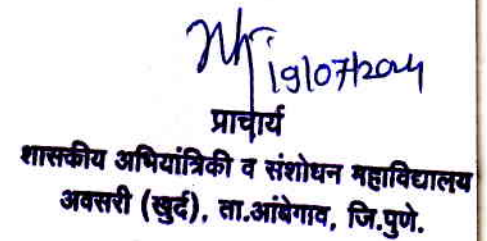 19/07/2024
प्राचार्य
शासकीय अभियांत्रिकी व संशोधन महाविद्यालय
अवसरी (खुर्द), ता.आंबेगाव, जि.पुणे.